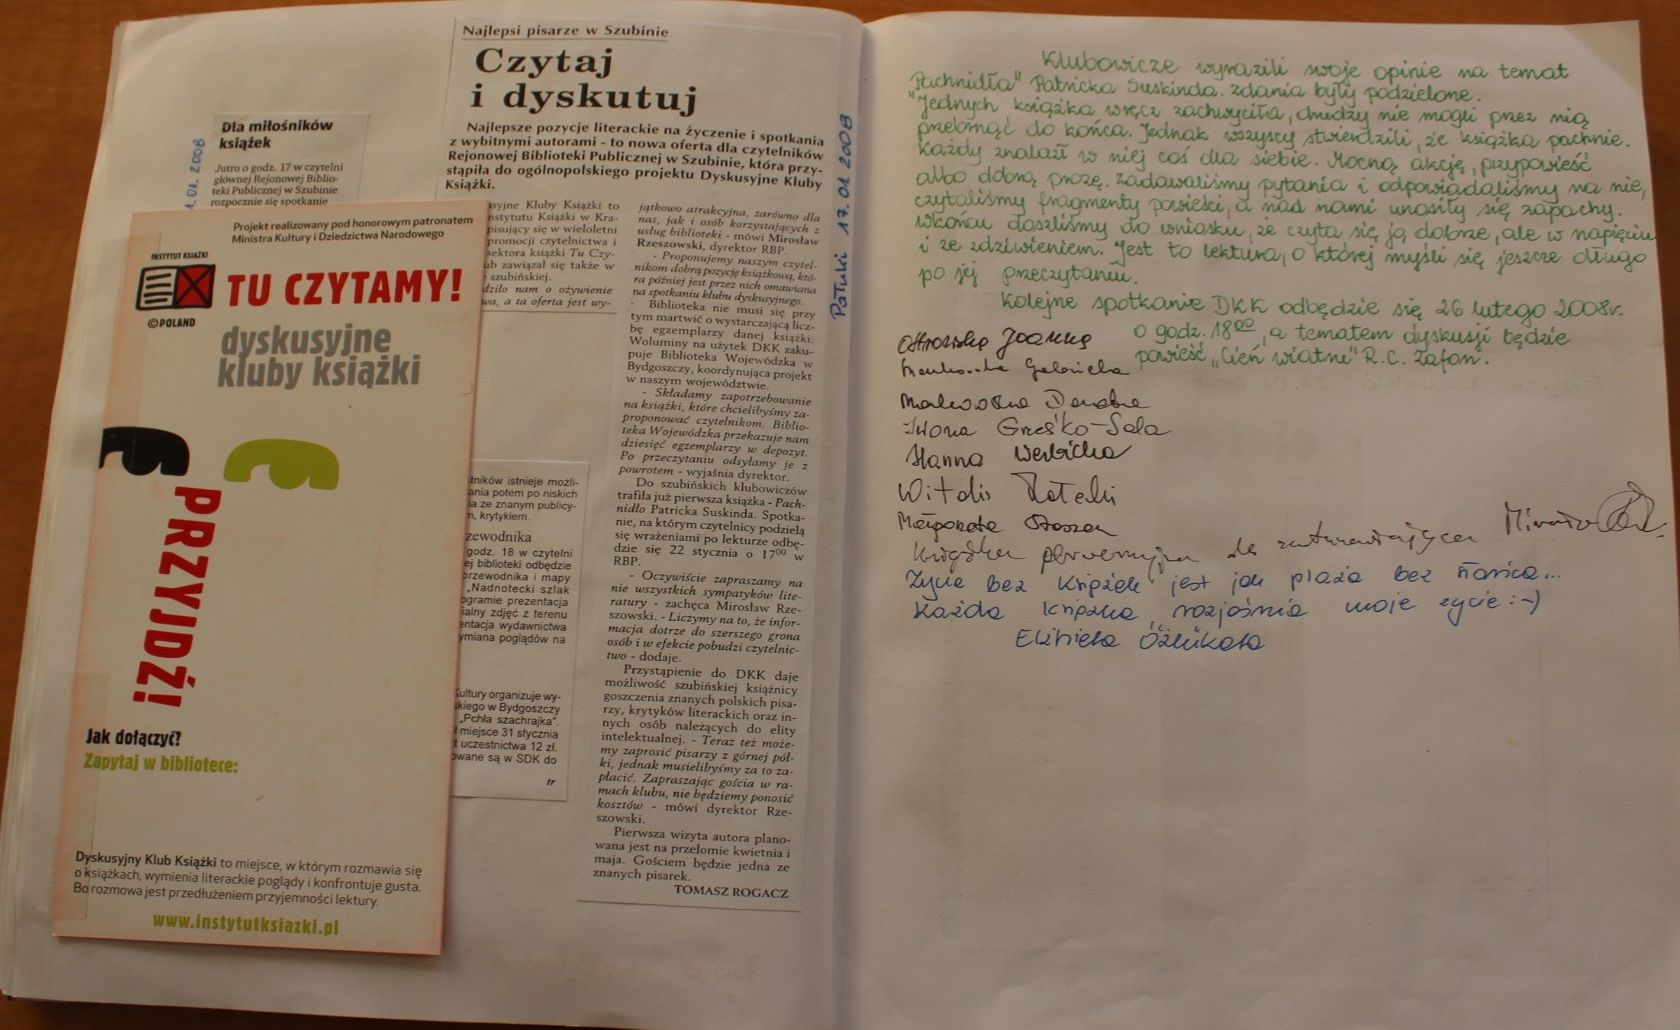 Najlepsi pisarze w Szubinie
Czytaj
i dyskutuj
Najlepsze pozycje literackie na życzenie i spotkania
z wybitnymi autorami - to nowa oferta dla czytelników
Rejonowej Biblioteki Publicznej w Szubinie, która przy-
stąpiła do ogólnopolskiego projektu Dyskusyjne Kluby
Książki.
syjne Kluby Książki to
nstytutu Książki w Kra-
pisujący w wieloletni
promocji czytelnictwa i
sektora książki Tu Czy-
ub zawiązał się także w
szubińskiej.
dziło nam o ożywienie
wa, a ta oferta jest wy-
jątkowo atrakcyjna, zarówno dla
nas, jak i osób korzystających z
usług biblioteki - mówi Mirosław
Rzeszowski, dyrektor RBP.
- Proponujemy naszym czytel-
nikom dobrą pozycję książkową, któ-
ra później jest przez nich omawiana
na spotkaniu klubu dyskusyjnego.
Biblioteka nie musi się przy
tym martwić o wystarczającą licz-
bę egzemplarzy danej książki.
Woluminy na użytek DKK zaku-
puje Biblioteka Wojewódzka w
Bydgoszczy, koordynująca projekt
w naszym województwie.
- Składamy zapotrzebowanie
na książki, które chcielibyśmy za-
proponować czytelnikom. Biblio-
teka Wojewódzka przekazuje nam
dziesięć egzemplarzy w depozyt.
Po przeczytaniu odsyłamy je z
powrotem - wyjaśnia dyrektor.
Do szubińskich klubowiczów
trafiła już pierwsza książka - Pach-
nidło Patricka Suskinda. Spotka-
nie, na którym czytelnicy podzielą
się wrażeniami po lekturze odbę-
dzie się 22 stycznia o 17⁰⁰ w
RBP.
- Oczywiście zapraszamy na
nie wszystkich sympatyków lite-
ratury - zachęca Mirosław Rze-
szowski. - Liczymy na to, że infor-
macja dotrze do szerszego grona
osób i w efekcie pobudzi czytelnic-
two - dodaje.
Przystąpienie do DKK daje
możliwość szubińskiej książnicy
goszczenia znanych polskich pisa-
rzy, krytyków literackich oraz in-
nych osób należących do elity
intelektualnej. - Teraz też może-
my zaprosić pisarzy z górnej pół-
ki, jednak musielibyśmy za to za-
płacić. Zapraszając gościa w ra-
mach klubu, nie będziemy ponosić
kosztów - mówi dyrektor Rze-
szowski.
Pierwsza wizyta autora plano-
wana jest na przełomie kwietnia i
maja. Gościem będzie jedna ze
znanych pisarek.
TOMASZ ROGACZ
Pałuki 17.01.2008
1.01.2008
Dla miłośników
książek
Jutro o godz. 17 w czytelni
głównej Rejonowej Biblio-
teki Publicznej w Szubinie
rozpocznie się spotkanie
Projekt realizowany pod honorowym patronatem
Ministra Kultury i Dziedzictwa Narodowego
INSTYTUT KSIĄŻKI
©POLAND
TU CZYTAMY!
dyskusyjne
kluby książki
PRZYJDŹ!
Jak dołączyć?
Zapytaj w bibliotece:
Dyskusyjny Klub Książki to miejsce, w którym rozmawia się
o książkach, wymienia literackie poglądy i konfrontuje gusta.
Bo rozmowa jest przedłużeniem przyjemności lektury.
www.instytutksiazki.pl
tników istnieje możli-
ania potem po niskich
ia ze znanym publicy-
m, krytykiem.
zewodnika
godz. 18 w czytelni
ej biblioteki odbędzie
przewodnika i mapy
„Nadnotecki szlak
ogramie prezentacja
ialny zdjęć z terenu
entacja wydawnictwa
ymiana poglądów na
Kultury organizuje wy-
kiego w Bydgoszczy
„Pchła szachrajka".
miejsce 31 stycznia
t uczestnictwa 12 zł.
owane są w SDK do
tr
Klubowicze wyrazili swoje opinie na temat
„Pachnidła" Patricka Suskinda. Zdania były podzielone.
Jednych książka wręcz zachwyciła, drudzy nie mogli przez nią
przebrnąć do końca. Jednak wszyscy stwierdzili, że książka pachnie.
Każdy znalazł w niej coś dla siebie. Mocną akcję, przypowieść
albo dobrą prozę. Zadawaliśmy pytania i odpowiadaliśmy na nie,
czytaliśmy fragmenty powieści, a nad nami unosiły się zapachy.
Wkońcu doszliśmy do wniosku, że czyta się ją dobrze, ale w napięciu
i ze zdziwieniem. Jest to lektura, o której myśli się jeszcze długo
po jej przeczytaniu.
Kolejne spotkanie DKK odbędzie się 26 lutego 2008r.
o godz. 18⁰⁰, a tematem dyskusji będzie
powieść „Cień wiatru" R.C. Zafon.
Ostrowska Joanna
Gabriela
Danuta
Iwona Greśko-Sala
Hanna Werbicka
Małgorzata
Książka perwersyjna ale zastanawiająca
Życie bez książek jest jak plaża bez słońca...
Każda książka rozjaśnia moje życie :-)
Elżbieta